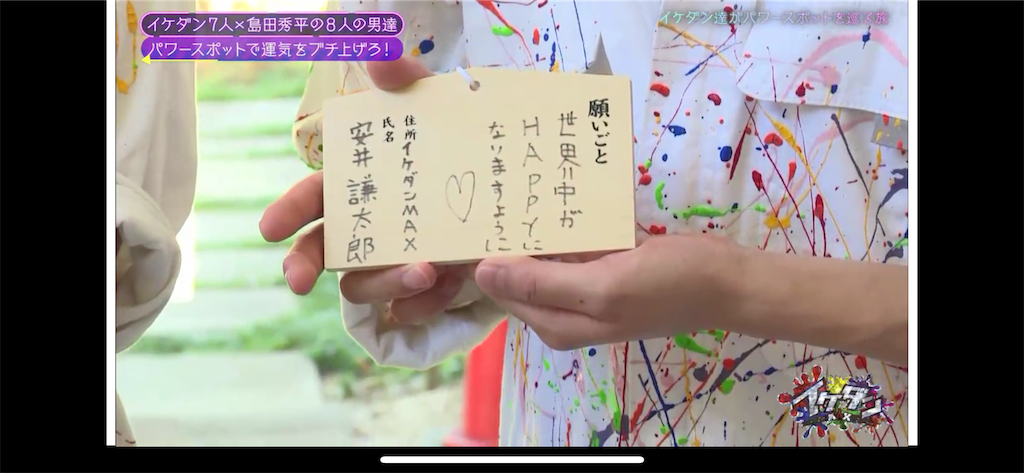 イケダン7人×島田秀平の8人の男達
パワースポットで運気をブチ上げろ!
イケダン達がパワースポットを巡る旅
願いごと
世界中が
HAPPYに
なりますように
♡
住所イケダンMAX
氏名
安井謙太郎
イケダン
MAX